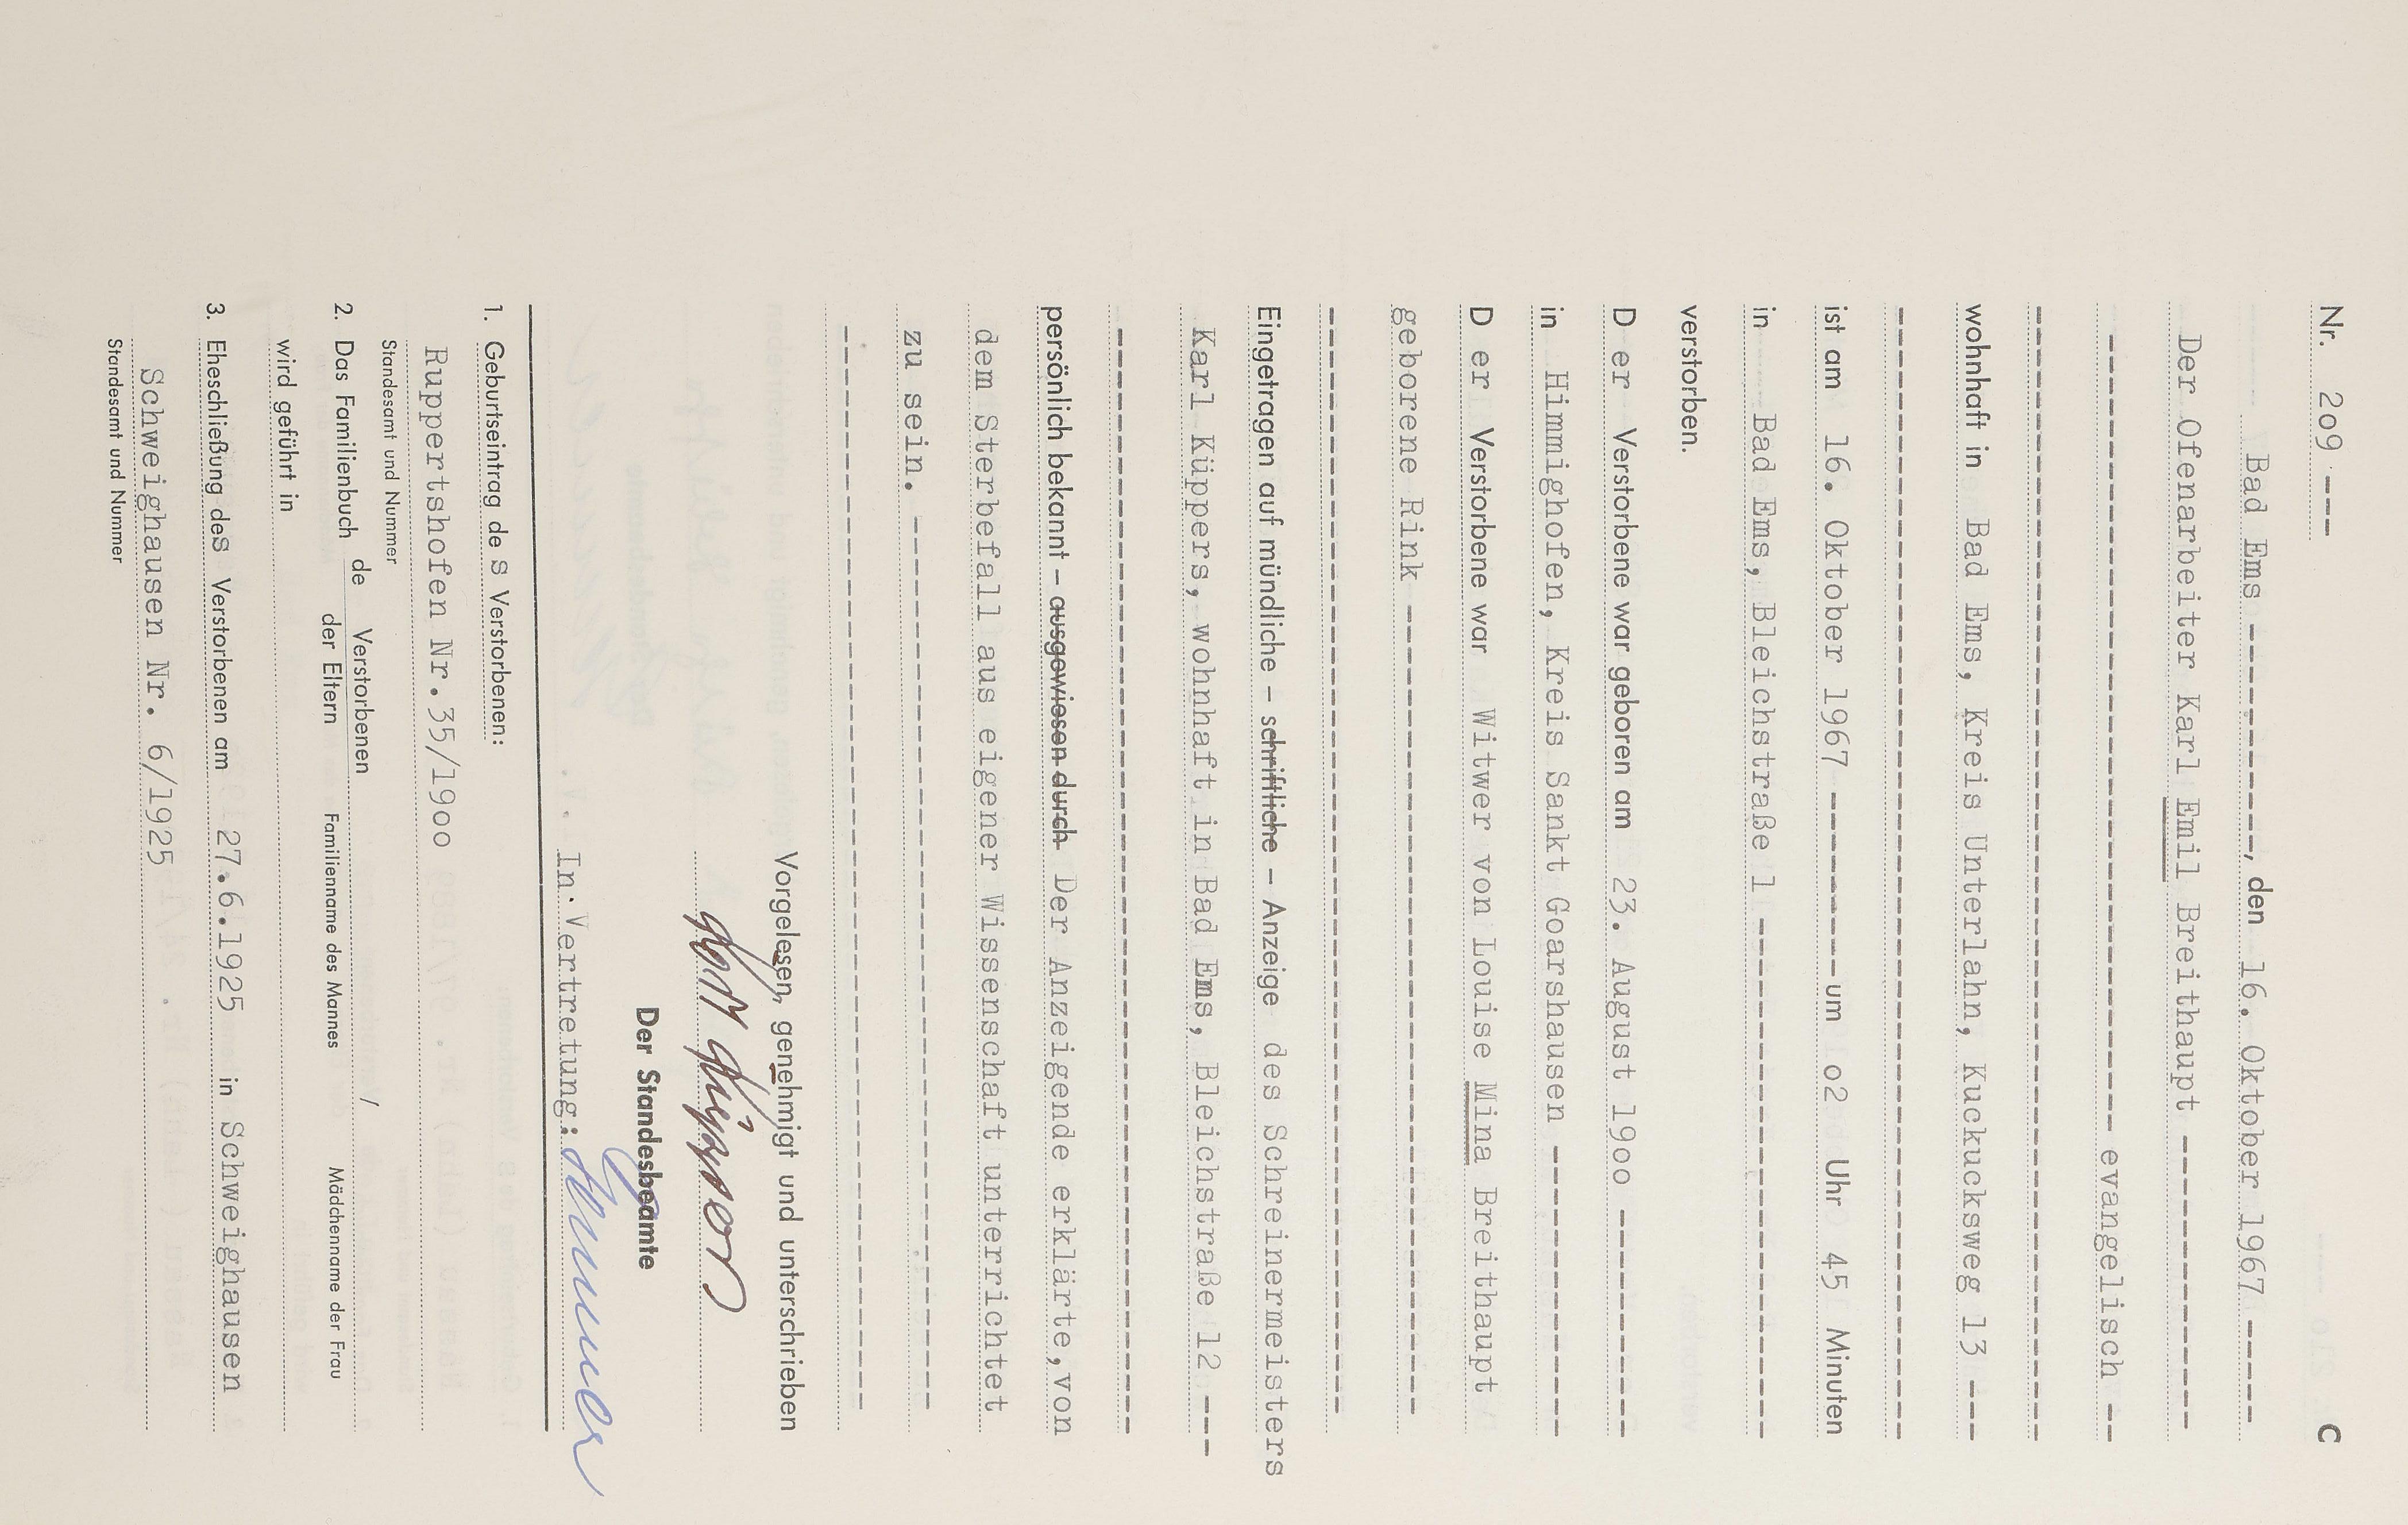 Nr. 2o9 --- C
Bad Ems ----------, den 16. Oktober 1967 -----
Der Ofenarbeiter Karl Emil Breithaupt ------------
---------------------------------- evangelisch --
wohnhaft in Bad Ems, Kreis Unterlahn, Kuckucksweg 13 ---
ist am 16. Oktober 1967 --------um o2 Uhr 45 Minuten
in Bad Ems, Bleichstraße 1 ------------------------
verstorben.
D er Verstorbene war geboren am 23. August 19oo ----------
in Himmighofen, Kreis Sankt Goarshausen -------------
D er Verstorbene war Witwer von Louise Mina Breithaupt
geborene Rink -----------------------------------
Eingetragen auf mündliche – schriftliche – Anzeige des Schreinermeisters
Karl Küppers, wohnhaft in Bad Ems, Bleichstraße 12 ---
persönlich bekannt – ausgewiesen durch Der Anzeigende erklärte,von
dem Sterbefall aus eigener Wissenschaft unterrichtet
zu sein. -----------------------------------------
Vorgelesen, genehmigt und unterschrieben
Karl Küppers
Der Standesbeamte
In Vertretung:
1. Geburtseintrag de s Verstorbenen:
Ruppertshofen Nr.35/19oo
Standesamt und Nummer
2. Das Familienbuch de Verstorbenen /
der Eltern Familienname des Mannes Mädchenname der Frau
wird geführt in
3. Eheschließung des Verstorbenen am 27.6.1925 in Schweighausen
Schweighausen Nr. 6/1925
Standesamt und Nummer